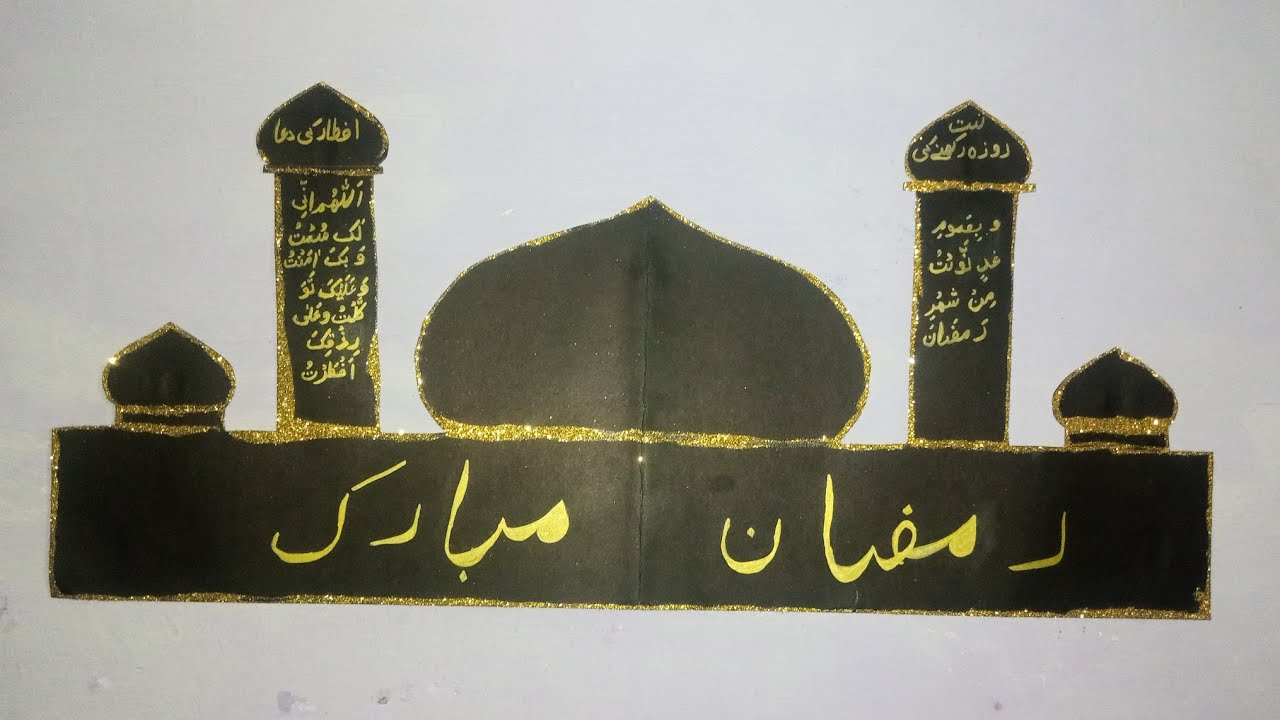 نیت
روزہ رکھنے کی
وبِصَومِ
غَدٍ نَّوَیْتُ
مِنْ شَھْرِ
رَمَضَانَ
افطار کی دعا
اَللّٰھُمَّ اِنِّی
لَکَ صُمْتُ
وَ بِکَ اٰمَنْتُ
وَ عَلَیْکَ تَوَ
کَّلْتُ وَعَلٰی
رِزْقِکَ
اَفْطَرْتُ
رمضان مبارک